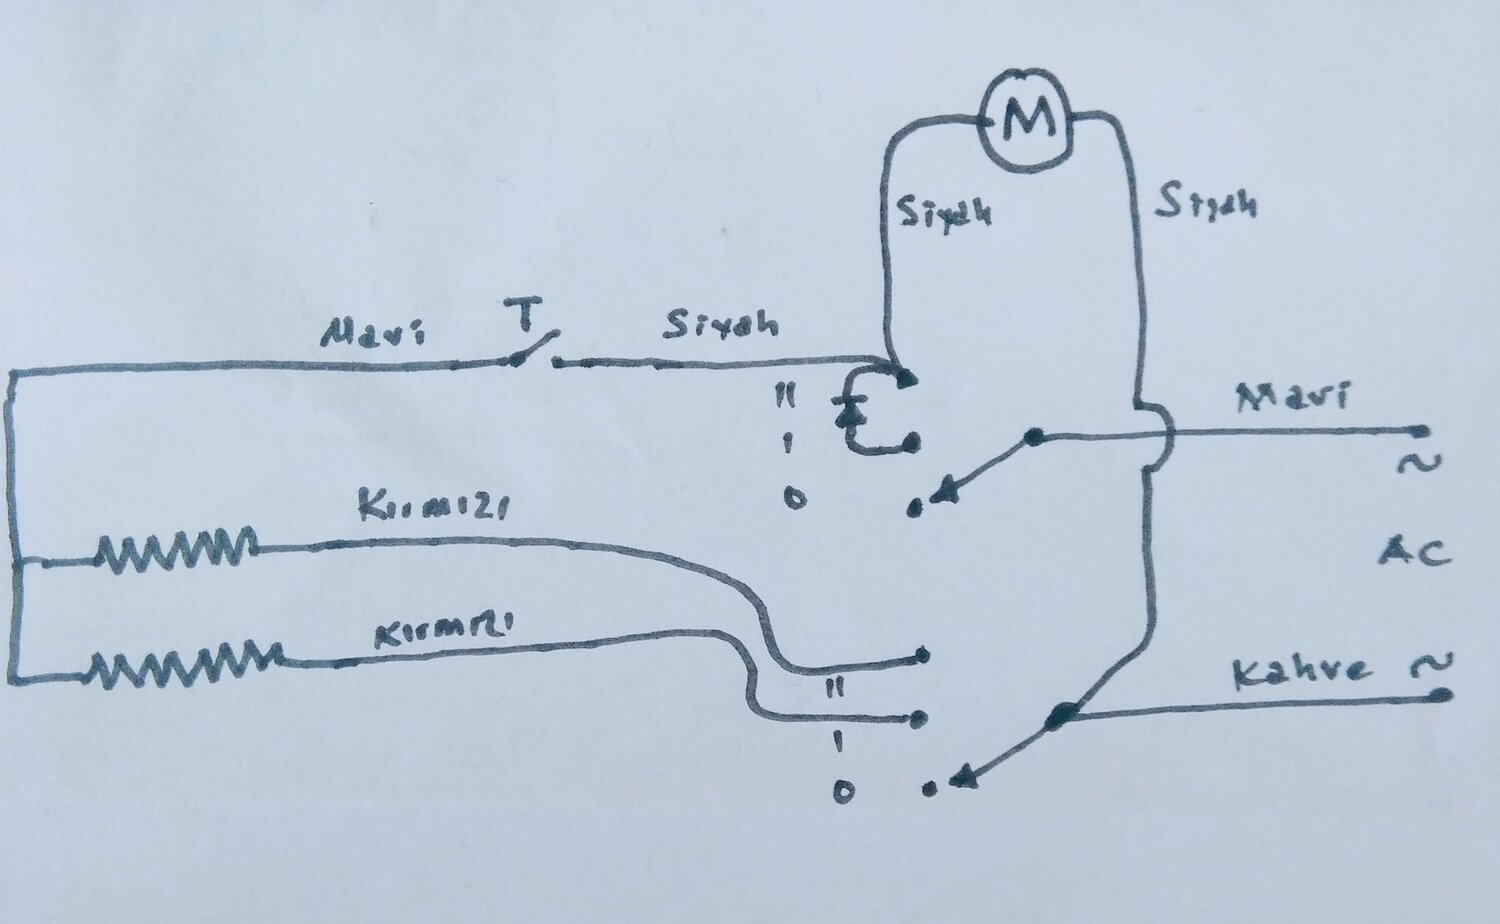 M
Siyah
Siyah
T
Mavi
Siyah
II
I
0
Mavi
~
Kırmızı
AC
Kırmızı
Kahve
~
II
I
0